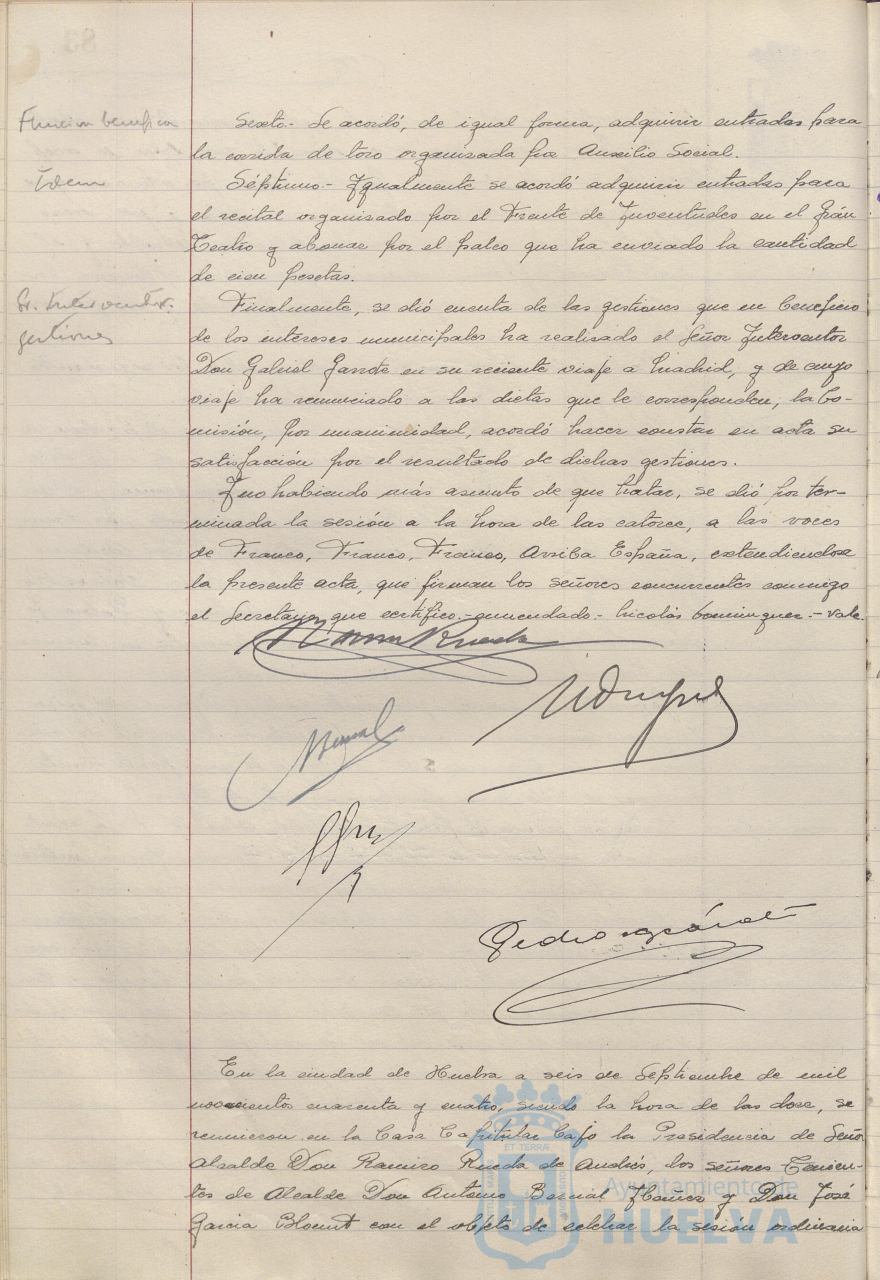 Funcion benefica
Sexto.- Se acordó, de igual forma, adquirir entradas para
la corrida de toro organizada por Auxilio Social.
Idem
Séptimo.- Igualmente se acordó adquirir entradas para
el recital organizado por el Frente de Juventudes en el Grán
Teatro y abonar por el palco que ha enviado la cantidad
de cien pesetas.
Sr. Interventor.
gestiones
Finalmente, se dió cuenta de las gestiones que en beneficio
de los intereses municipales ha realizado el Señor Interventor
Don Gabriel Garrote en su reciente viaje a Madrid, y de cuyo
viaje ha renunciado a las dietas que le corresponden, la Co-
misión, por unanimidad, acordó hacer constar en acta su
satisfacción por el resultado de dichas gestiones.
Y no habiendo más asunto de que tratar, se dió por ter-
minada la sesión a la hora de las catorce, a las voces
de Franco, Franco, Franco, Arriba España, extendiendose
la presente acta, que firman los señores concurrentes conmigo
el Secretario que certifico.- enmendado.- Nicolás Dominguez.- vale.
Ramiro Rueda
Bernal
Pedro
En la ciudad de Huelva a seis de Septiembre de mil
novecientos cuarenta y cuatro, siendo la hora de las doce, se
reunieron en la Casa Capitular bajo la Presidencia de Señor
Alcalde Don Ramiro Rueda de Andrés, los señores Tenien-
tes de Alcalde Don Antonio Bernal Ibañez y Don José
Garcia Blount con el objeto de celebrar la sesión ordinaria
Ayuntamiento de
HUELVA